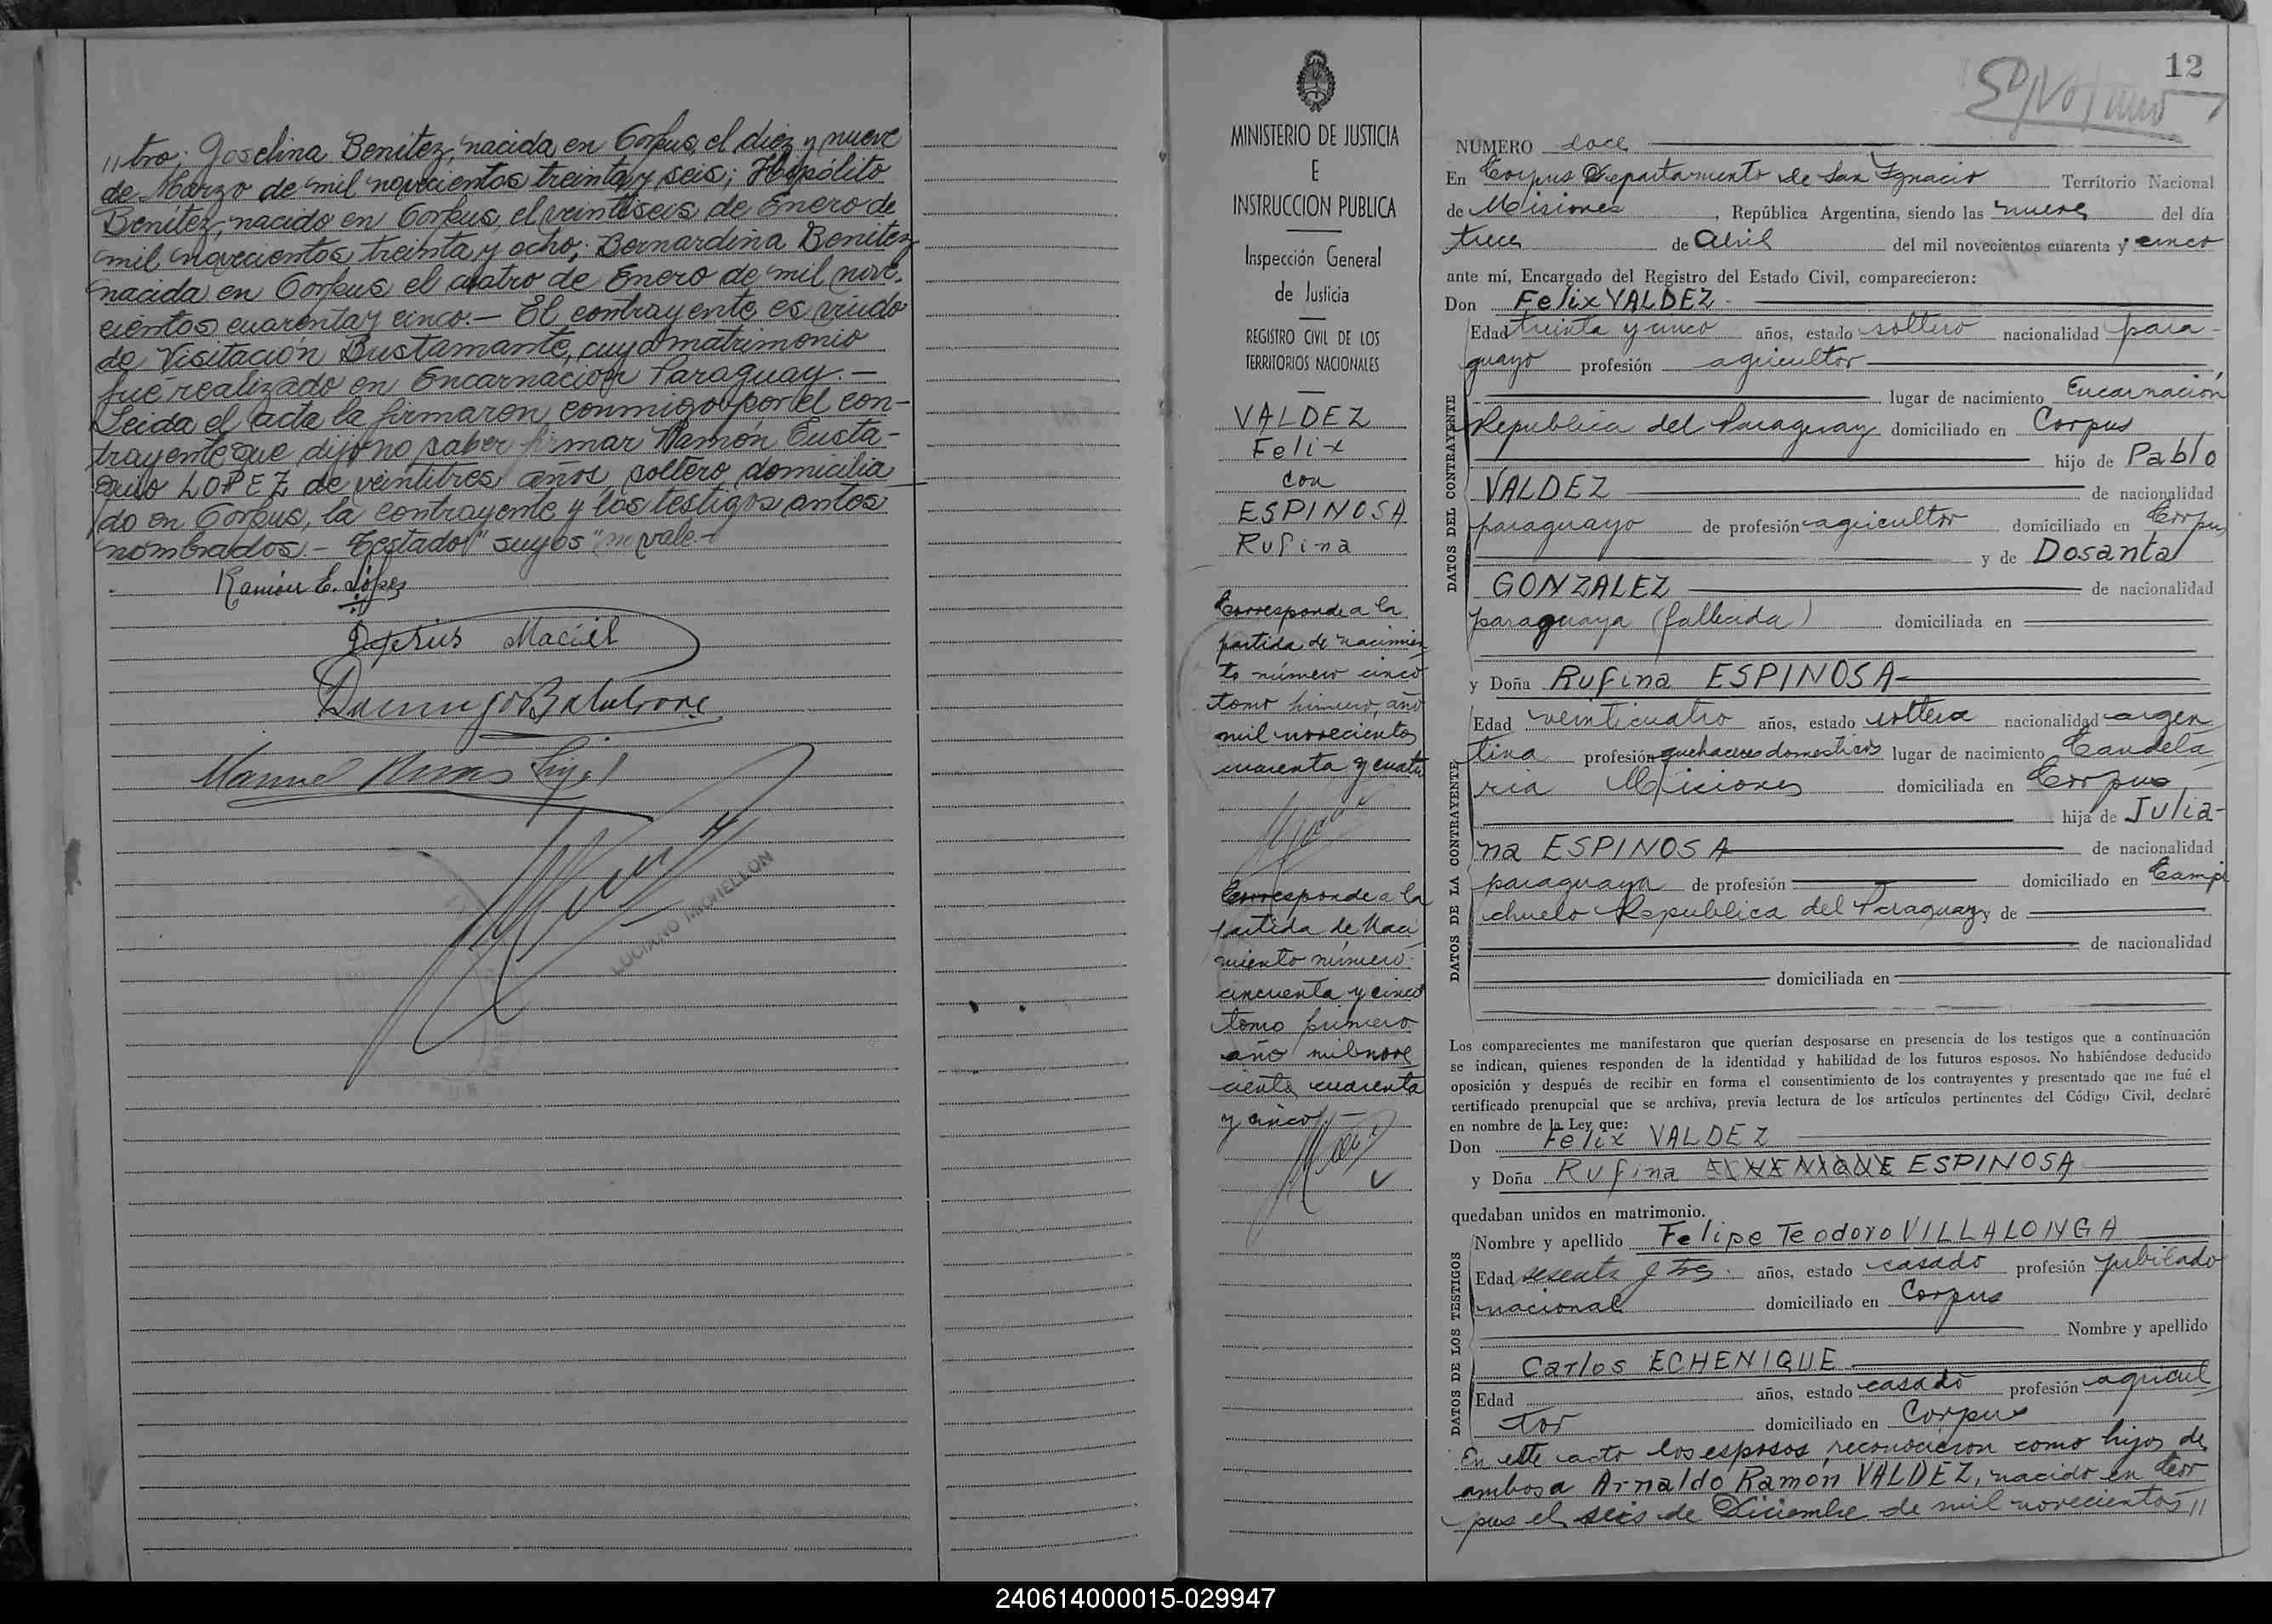 //tro; Joselina Benítez, nacida en Corpus, el diez y nueve
de Marzo de mil novecientos treinta y seis; Hipólito
Benítez, nacido en Corpus, el veintiseis de Enero de
mil novecientos treinta y ocho; Bernardina Benítez
nacida en Corpus el cuatro de Enero de mil nove-
cientos cuarenta y cinco.- El contrayente es viudo
de Visitación Bustamante, cuyo matrimonio
fué realizado en Encarnación Paraguay.-
Leida el acta la firmaron conmigo por el con-
trayente que dijo no saber firmar Ramón Eusta-
quio LOPEZ de veintitres años, soltero, domicilia
do en Corpus, la contrayente y los testigos antes
nombrados.- Testado "suyos" no vale.-
Ramón E. López
Maciel
Domingo
Manuel
LUCIANO MICHIELLON
MINISTERIO DE JUSTICIA
E
INSTRUCCION PUBLICA
Inspección General
de Justicia
REGISTRO CIVIL DE LOS
TERRITORIOS NACIONALES
VALDEZ
Felix
con
ESPINOSA
Rufina
Corresponde a la
partida de nacimien
to número cinco
tomo primero, año
mil novecientos
cuarenta y cuatro
Corresponde a la
partida de Naci
miento número
cincuenta y cinco
tomo primero
año mil nove
cientos cuarenta
y cinco.-
12
NUMERO doce
En Corpus Departamento de San Ignacio Territorio Nacional
de Misiones, República Argentina, siendo las nueve del día
trece de Abril del mil novecientos cuarenta y cinco
ante mí, Encargado del Registro del Estado Civil, comparecieron:
Don Felix VALDEZ
DATOS DEL CONTRAYENTE
Edad treinta y cinco años, estado soltero nacionalidad para-
guayo profesión agricultor
lugar de nacimiento Encarnación,
Republica del Paraguay domiciliado en Corpus
hijo de Pablo
VALDEZ de nacionalidad
paraguayo de profesión agricultor domiciliado en Corpus
y de Dosanta
GONZALEZ de nacionalidad
paraguaya (fallecida) domiciliada en
y Doña Rufina ESPINOSA
DATOS DE LA CONTRAYENTE
Edad veinticuatro años, estado soltera nacionalidad argen
tina profesión quehaceres domesticos lugar de nacimiento Candela
ria Misiones domiciliada en Corpus
hija de Julia-
na ESPINOSA de nacionalidad
paraguaya de profesión domiciliado en Campi
chuelo Republica del Paraguay y de
de nacionalidad
domiciliada en
Los comparecientes me manifestaron que querían desposarse en presencia de los testigos que a continuación
se indican, quienes responden de la identidad y habilidad de los futuros esposos. No habiéndose deducido
oposición y después de recibir en forma el consentimiento de los contrayentes y presentado que me fué el
certificado prenupcial que se archiva, previa lectura de los artículos pertinentes del Código Civil, declaré
en nombre de la Ley que:
Don Felix VALDEZ
y Doña Rufina ECHENIQUE ESPINOSA
quedaban unidos en matrimonio.
DATOS DE LOS TESTIGOS
Nombre y apellido Felipe Teodoro VILLALONGA
Edad sesenta y tres años, estado casado profesión jubilado
nacional domiciliado en Corpus
Nombre y apellido
Carlos ECHENIQUE
Edad años, estado casado profesión agricul
tor domiciliado en Corpus
En este acto los esposos reconocieron como hijos de
ambos a Arnaldo Ramón VALDEZ, nacido en Cor
pus el seis de Diciembre de mil novecientos //
240614000015-029947